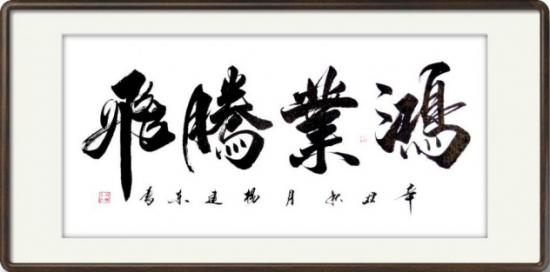 鴻業騰飛
辛丑秋月楊建東書